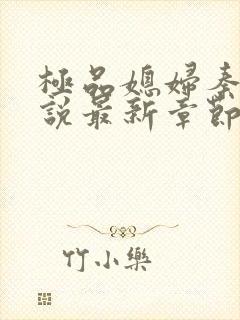 極品媳婦秦
說最新章節
竹小樂